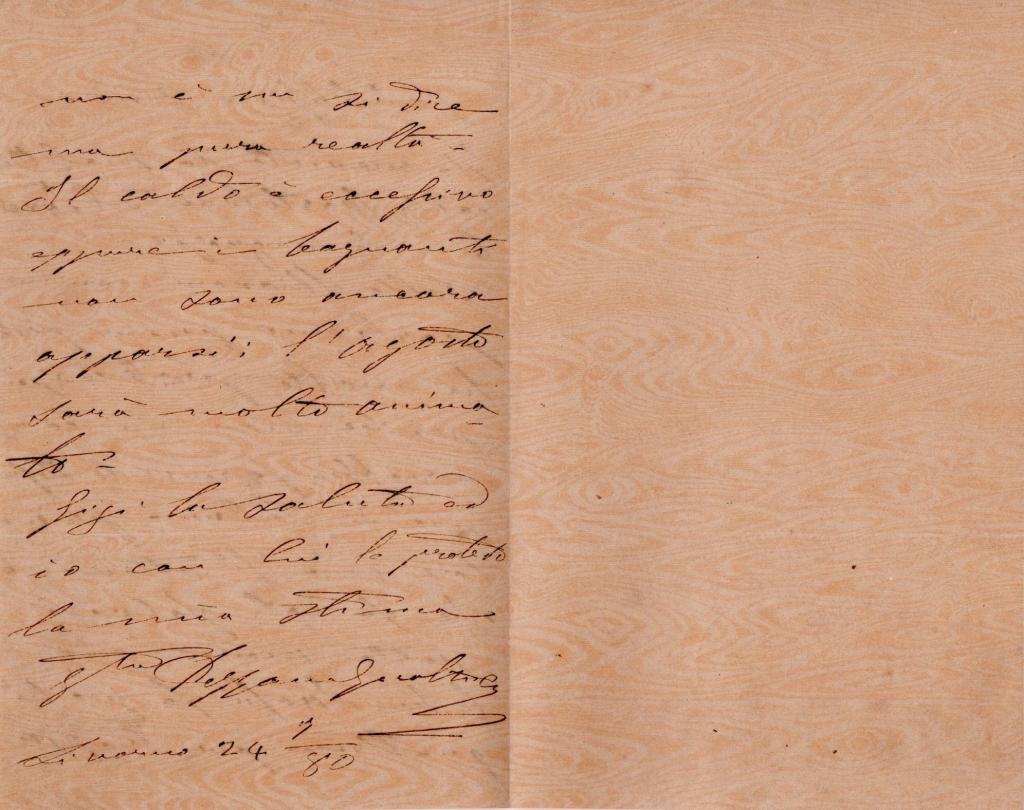 non è un si dice
ma pura realtà -
Il caldo è eccessivo
eppure i bagnanti
non sono ancora
apparsi; l'agosto
sarà molto anima
to -
Gigi la saluta ed
io con lui le protesto
la mia stima
Livorno 24 7/80